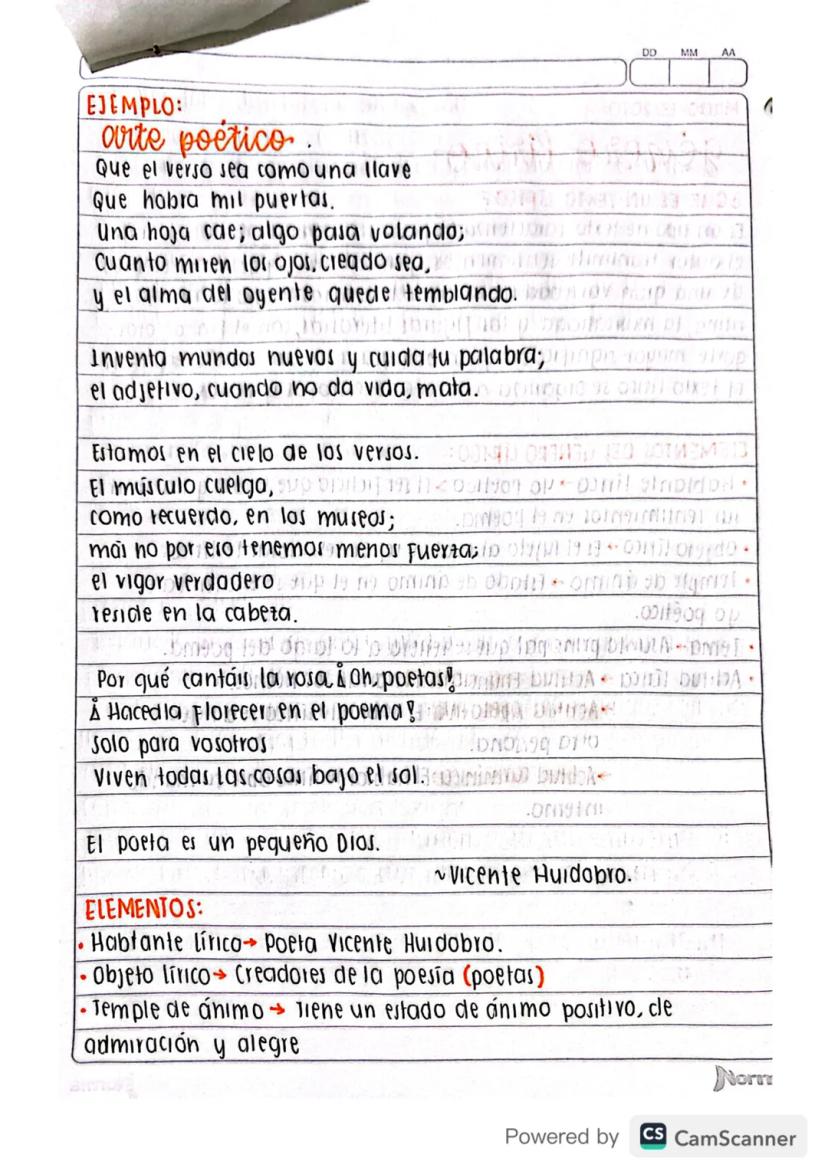 DD MM AA
EJEMPLO:
arte poético.
Que el verso sea como una llave
Que habra mil puertas.
Una hoja cae; algo pasa volando;
Cuanto miren los ojos, creado sea,
y el alma del oyente quede temblando.
Inventa mundos nuevos y cuida tu palabra;
el adjetivo, cuando no da vida, mata.
Estamos en el cielo de los versos.
El músculo cuelga,
como recuerdo, en los museos;
mas no por eso tenemos menos fuerza;
el vigor verdadero
reside en la cabeza.
Por qué cantáis la rosa, ¡Oh, poetas!
¡Hacedla florecer en el poema!
Solo para vosotros
Viven todas las cosas bajo el sol.
El poeta es un pequeño Dios.
~Vicente Huidobro.
ELEMENTOS:
• Hablante lírico→ Poeta Vicente Huidobro.
• Objeto lírico→ Creadores de la poesía (poetas)
• Temple de ánimo → Tiene un estado de ánimo positivo, de
admiración y alegre
Norm
Powered by CS CamScanner